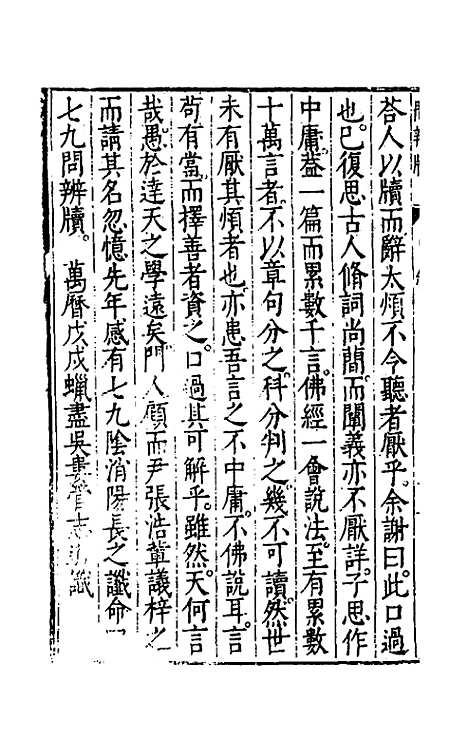 荅人以牘而辭太煩不令聽者厭乎余謝曰此口過
也已復思古人脩詞尚簡而闡義亦不厭詳子思作
中庸葢一篇而累數千言佛經一會說法至有累數
十萬言者不以章句分之科分判之幾不可讀然世
未有厭其煩者也亦患吾言之不中庸不佛說耳言
苟有當而擇善者資之口過其可解乎雖然天何言
哉愚於達天之學遠矣門人顧而尹張浩輩議梓之
而請其名忽憶先年感有七九陰消陽長之讖命
七九問辨牘。萬曆戊戌蠟盡吳婁管志道識